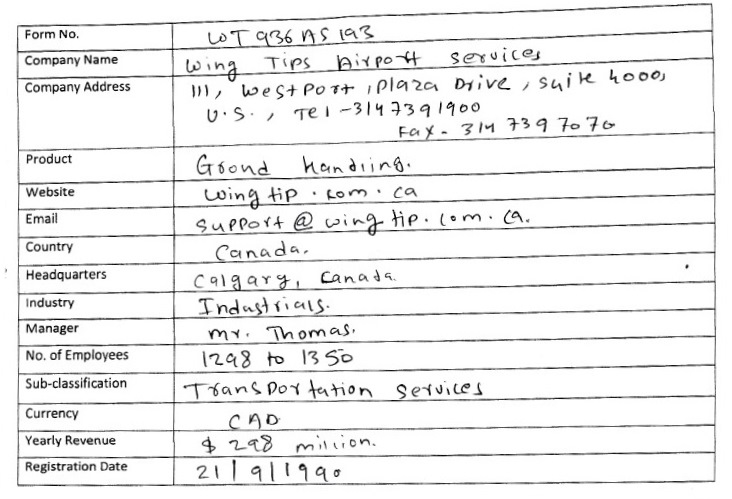 Form No. WT 936 AS 193
Company Name Wing Tips Airport Services
Company Address 111, West Port, Plaza Drive, Suite 4000,
U.S., Tel - 314 739 1900
Fax - 314 739 7070
Product Grond Handling.
Website wingtip.com.ca
Email support@wingtip.com.ca.
Country Canada.
Headquarters Calgary, Canada.
Industry Industrials.
Manager Mr. Thomas.
No. of Employees 1298 to 1350
Sub-classification Transportation Services
Currency CAD
Yearly Revenue $ 298 million.
Registration Date 21/9/1990